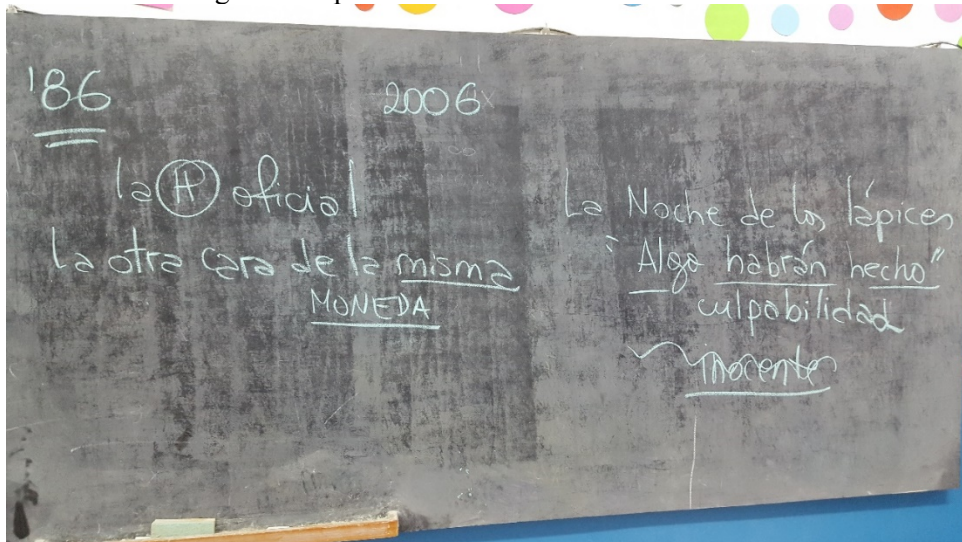 '86
2006
la H oficial
La otra cara de la misma
MONEDA
La Noche de los lápices
"Algo habrán hecho"
culpabilidad
inocente